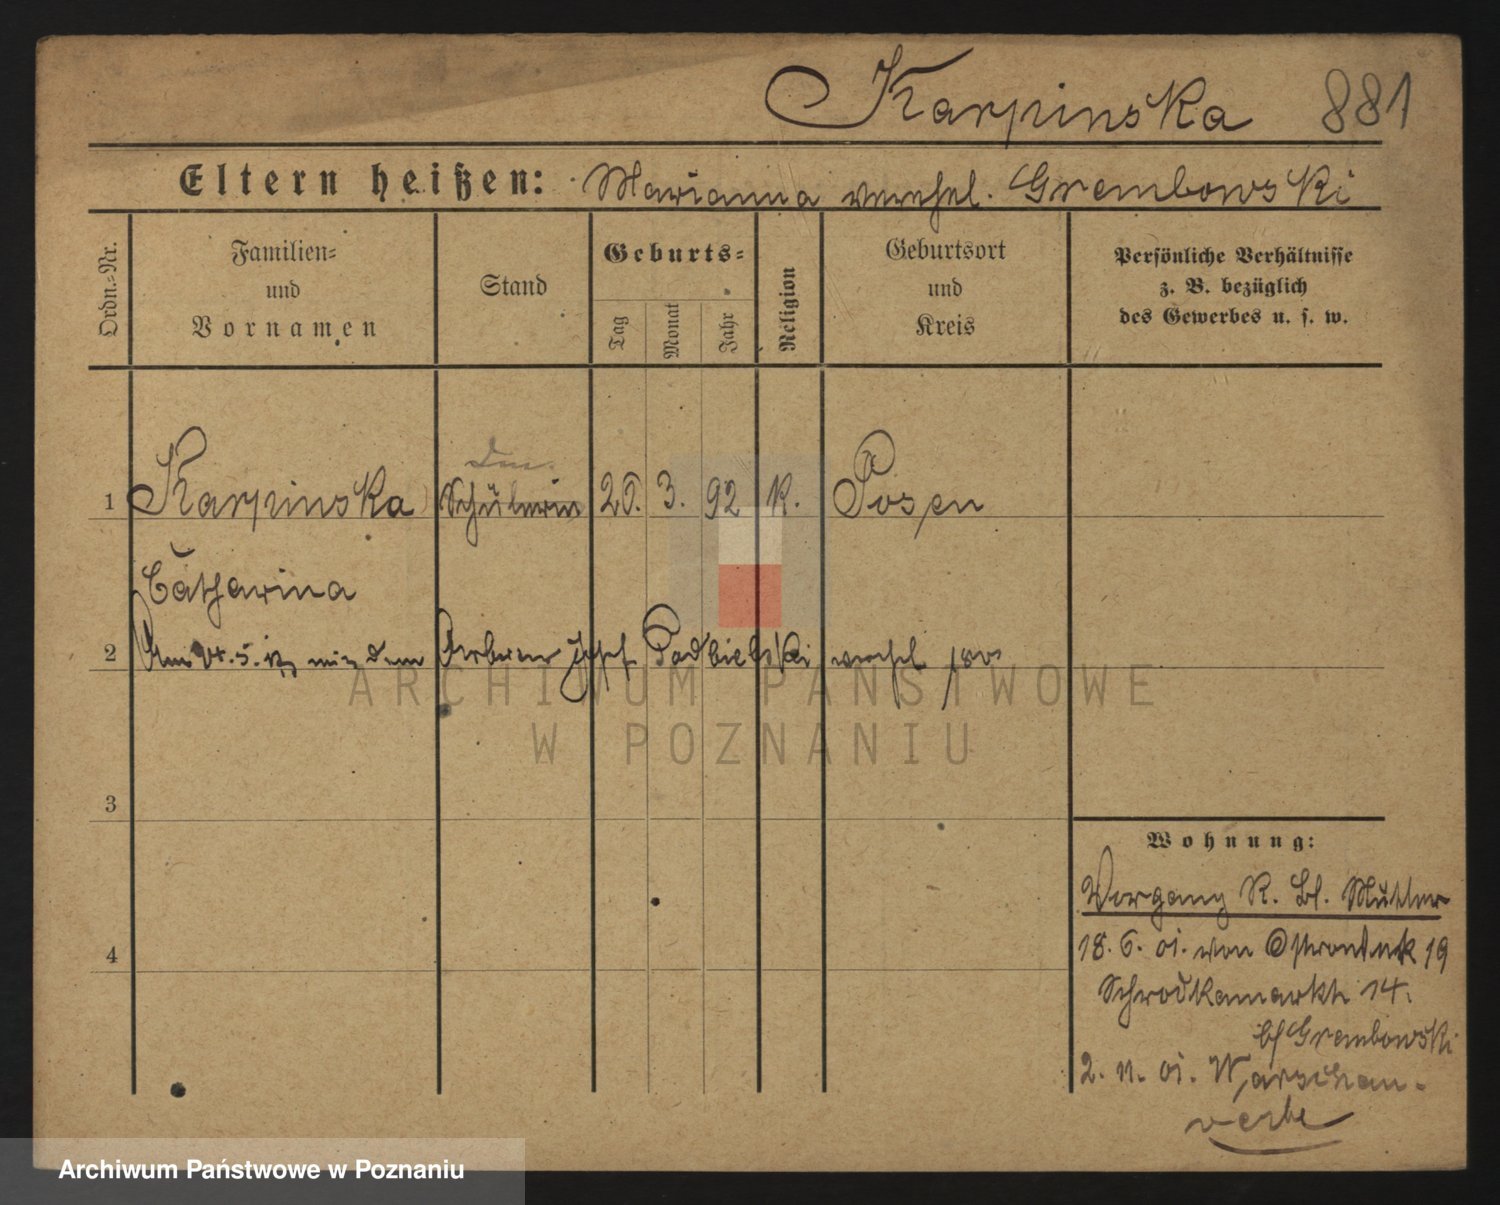 Karpinska 881
Eltern heißen: Marianna verehel. Grembowski
Ordn.=Nr.
Familien=
und
Vornamen
Stand
Geburts=
Tag
Monat
Jahr
Religion
Geburtsort
und
Kreis
Persönliche Verhältnisse
z. B. bezüglich
des Gewerbes u. s. w.
1 Karpinska Schülerin 20. 3. 92 K. Posen
Catharina
2 Am 5. mit dem Arbeiter Josef Podbielski verehel
3
4
Wohnung:
K. Bl. Mutter
18. 6. 01. von Ostrondnek 19
Schrodkamarkt 14.
bf Grembowski
2. 11. 01. Warschau-
ARCHIWUM PAŃSTWOWE
W POZNANIU
Archiwum Państwowe w Poznaniu